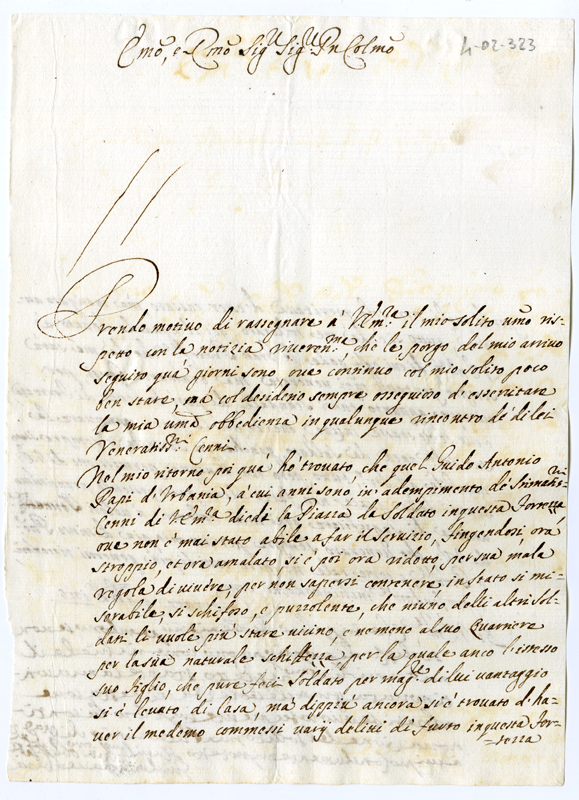 Emō, e Rmō Sig.r Sig.r Pn Colmō
4-02-323
Prendo motivo di rassegnare à V. Em.za il mio solito umō ris-
petto con la notizia riveren.ma, che le porgo del mio arrivo
seguito quà giorni sono ove continuo col mio solito poco
ben stare, mà col desiderio sempre ossequioso d'essercitare
la mia umā obbedienza in qualunque rincontro de' di lei
Veneratiss.mi Cenni.
Nel mio ritorno poi quà hò trovato, che quel Guido Antonio
Papi d'Urbania, à cui anni sono, in adempimento de' Stimatis.mi
Cenni di V. Em.za diedi la Piazza da Soldato in questa Fortezza,
ove non è mai stato abile a far il servizio, fingendosi, ora
stroppio, et ora amalato, si è poi ora ridotto, per sua mala
regola di vivere, per non sapersi contenere, in stato si mi-
serabile, si schifoso, e puzzolente, che niuno delli altri Sol-
dati li vuole più stare vicino, e nemeno al suo Quartiere
per la sua naturale schifezza, per la quale anco l'istesso
suo figlio, che pure feci Soldato per mag.re di lui vantaggio
si è levato di Casa, mà dippiù ancora si è trovato d'ha-
ver il medemo commessi varij delitti di furto in questa For-
-tezza